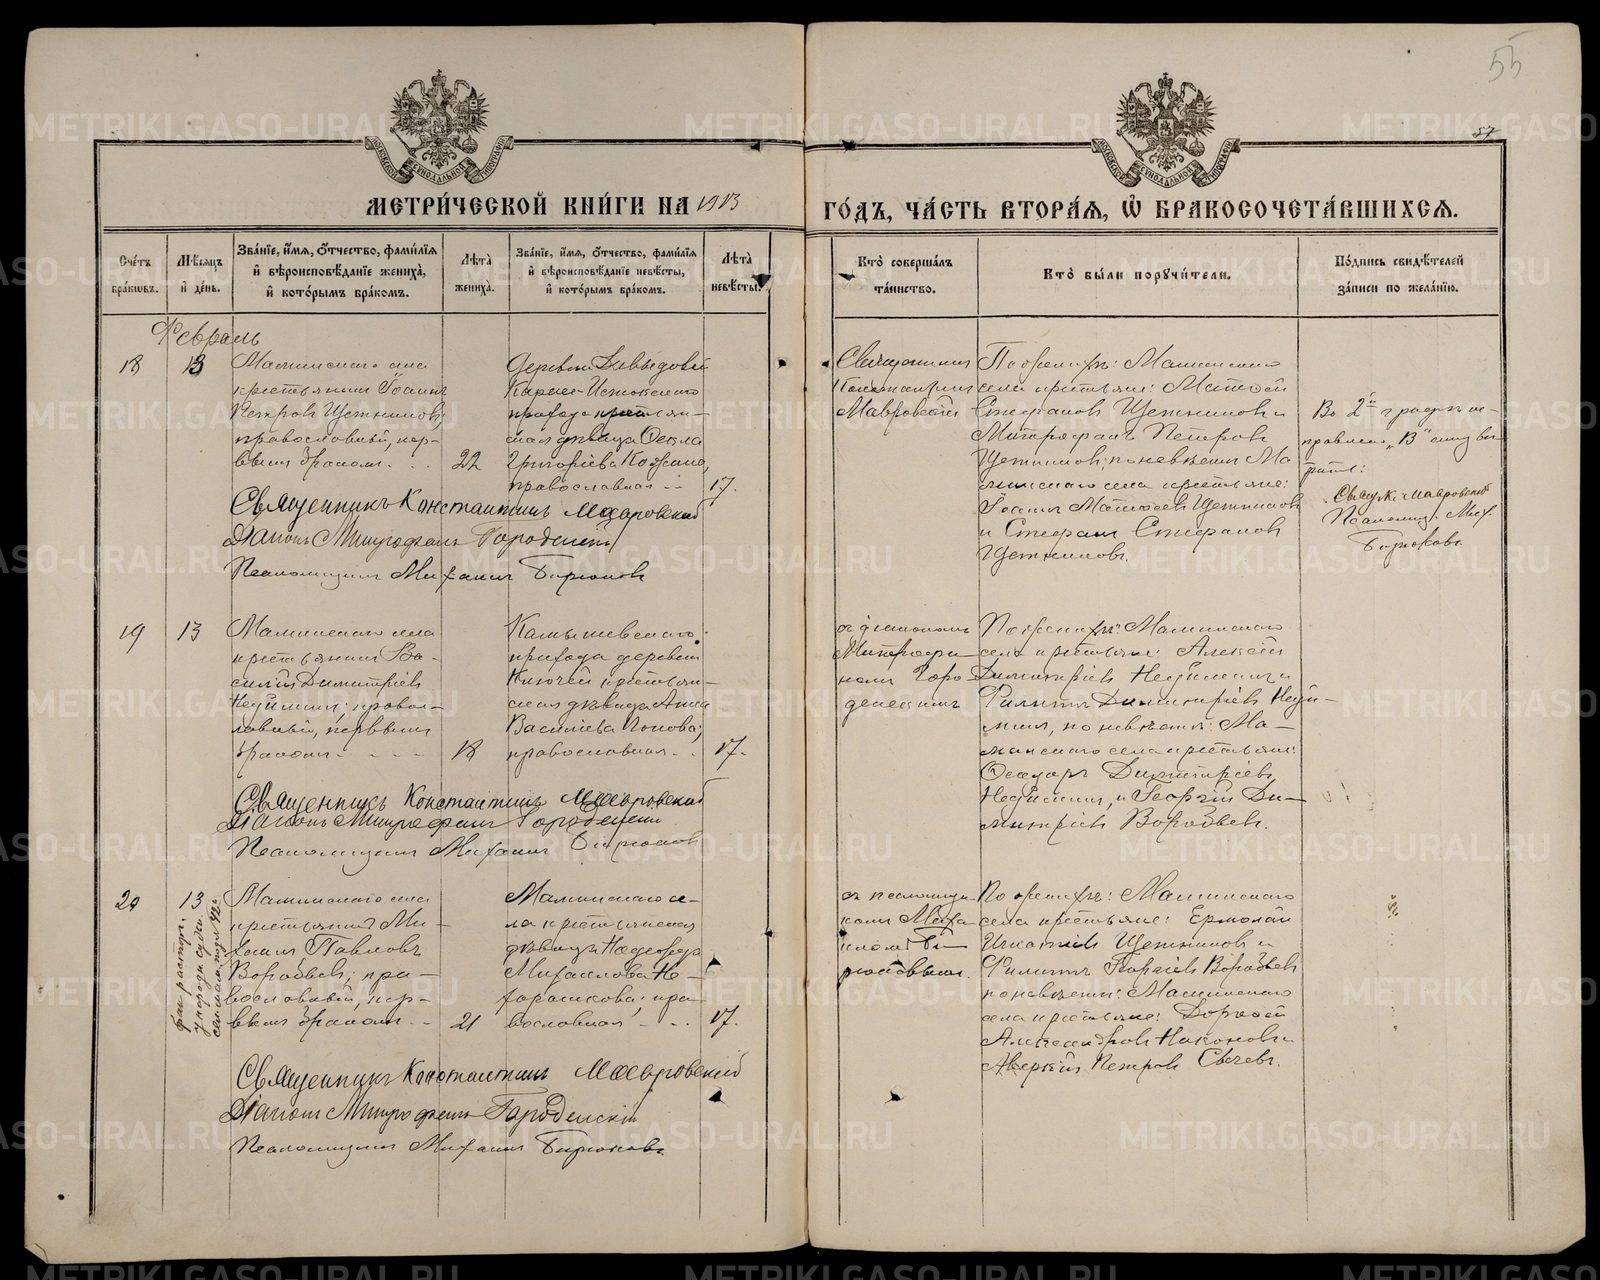 55
57
МЕТРИ́ЧЕСКОЙ КНИ́ГИ НА 1913
ГО́ДЪ, ЧА́СТЬ ВТОРА́Я, Ѡ БРАКОСОЧЕТА́ВШИХСЯ.
Сче́тъ бра́ковъ.
Мѣ́сяцъ и́ де́нь.
Зва́нїе, и́мя, ѻ́тчество, фами́лїя и́ вѣроисповѣ́данїе жениха̀, и́ кото́рымъ бра́комъ.
Лѣ́та̀ жениха̀.
Зва́нїе, и́мя, ѻ́тчество, фами́лїя и́ вѣроисповѣ́данїе невѣ́сты, и́ кото́рымъ бра́комъ.
Лѣ́та̀ невѣ́сты.
Кто̀ соверша́лъ та́инство.
Кто̀ бы́ли порꙋчи́тели.
По́дпись свидѣ́телей за́писи по жела́нїю.
Февраль
18
13
Маминскаго села
крестьянинъ Іоаннъ
Петровъ Щетниковъ,
православный, пер-
вымъ бракомъ. . .
22
Деревни Давыдовой
прихода крестьян-
ская дѣвица
Григорієва
православная
17.
Священникъ
Константинъ
Мавровскій
По женихѣ: Маминскаго
села крестьяне: Матѳей
Стефановъ Щетниковъ и
Митрофанъ Петровъ
Щетниковъ; по невѣстѣ: Ма-
минскаго села крестьяне:
Іоаннъ Матѳеевъ Щетниковъ
и Стефанъ Стефановъ
Щетниковъ.
Во 2й графѣ ис-
правлен. "13"
Свящ. К. Мавровскій
Псаломщ. Мих.
Бирюковъ
Священникъ Константинъ Мавровскій
Діаконъ Митрофанъ Городенскій
Псаломщикъ Михаилъ Бирюковъ
19
13
Маминскаго села
крестьянинъ Ва-
силій Димитріевъ
православ-
лавный, первымъ
бракомъ - - - -
18
Камышевскаго
прихода деревни
Ключей крестьян-
ская дѣвица Анна
Васильева Попова,
православная. .
17.
съ діакономъ
Митрофа-
номъ Горо-
денскимъ
По женихѣ: Маминскаго
села крестьяне: Алексѣй
Димитріевъ
Филиппъ Димитріевъ
по невѣстѣ: Ма-
минскаго села крестьяне:
Ѳеодоръ Димитріевъ
и Георгій Ди-
митріевъ Воробьевъ.
Священникъ Константинъ Мавровскій
Діаконъ Митрофанъ Городенскій
Псаломщикъ Михаилъ Бирюковъ
20
13
Маминскаго села
крестьянинъ Ми-
хаилъ Павловъ
Воробьевъ, пра-
вославный, пер-
вымъ бракомъ. -
21
Маминскаго се-
ла крестьянская
дѣвица Надежда
Михаилова
православная - . .
17.
съ псаломщи-
комъ Миха-
иломъ Би-
рюковымъ.
По женихѣ: Маминскаго
села крестьяне: Ермолай
Игнатіевъ Щетниковъ и
Филиппъ Воробьевъ
по невѣстѣ: Маминскаго
села крестьяне:
Александровъ Наконовъ и
Аверкій Петровъ
Священникъ Константинъ Мавровскій
Діаконъ Митрофанъ Городенскій
Псаломщикъ Михаилъ Бирюковъ.
METRIKI.GASO-URAL.RU